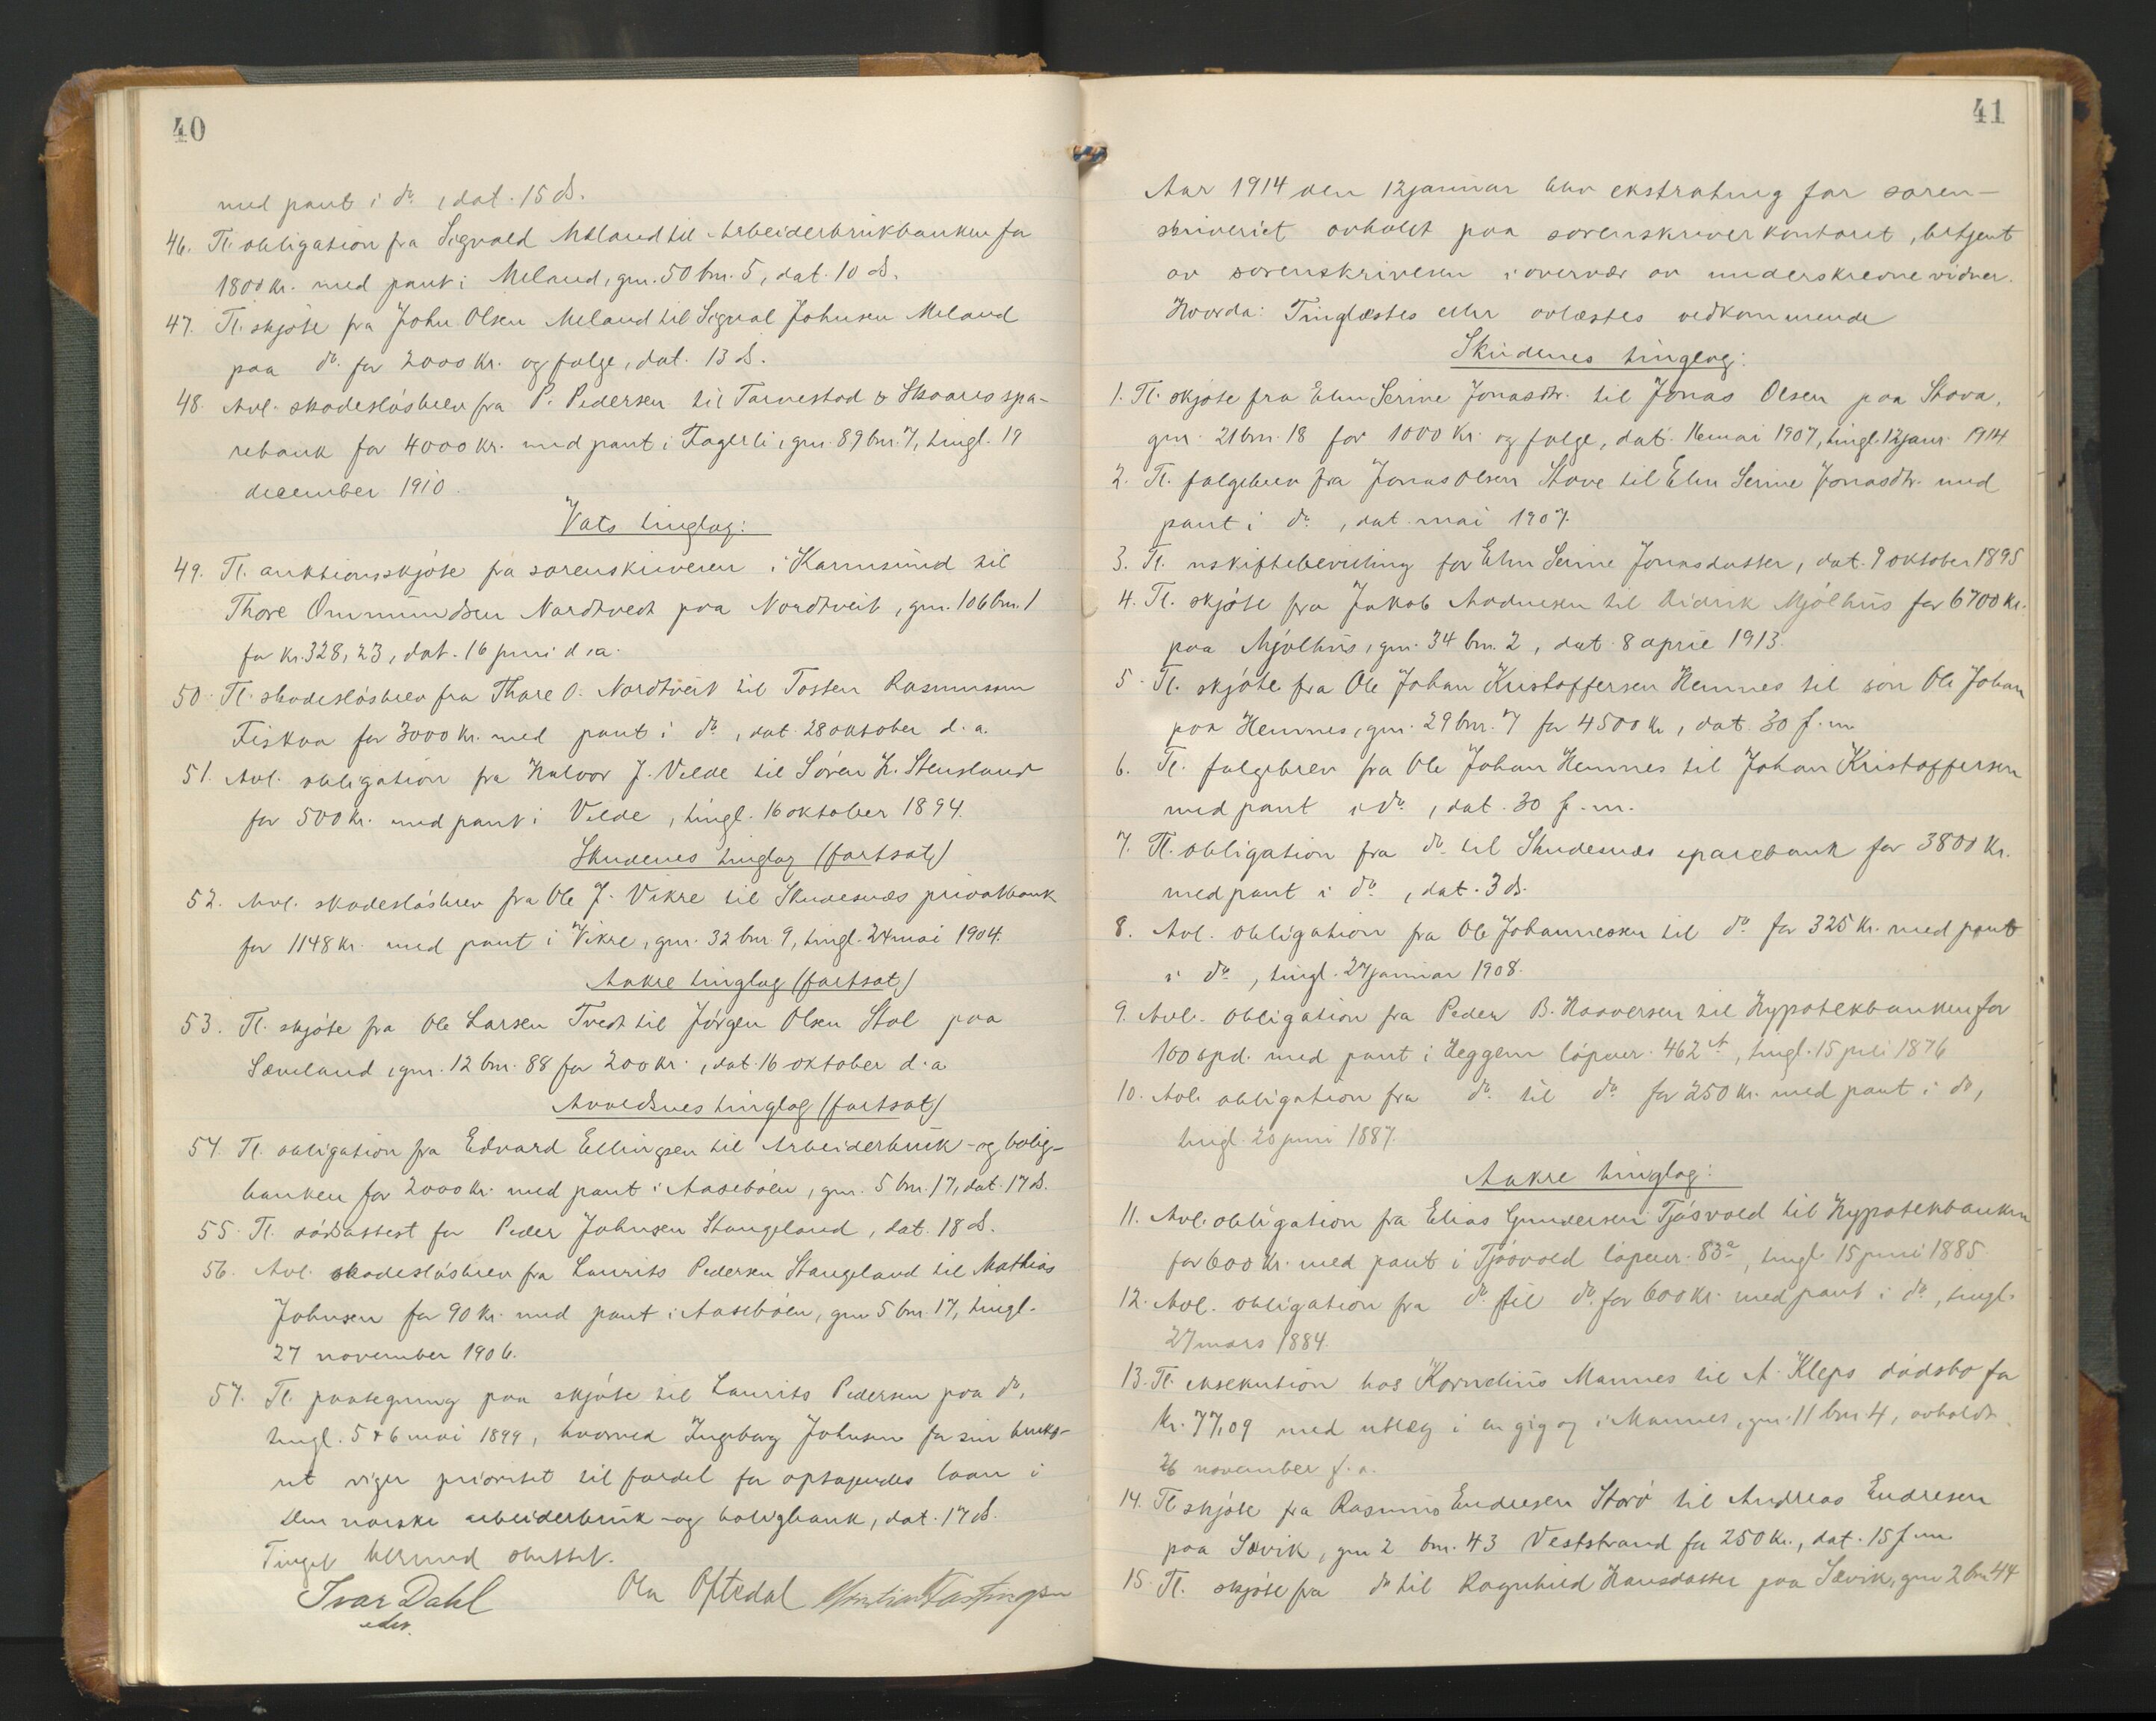 40
med pant i do, dat. 15 ds.
46. Tl. obligation fra Sigvald Mæland til Arbeiderbrukbanken for
1800 kr. med pant i Meland, gnr. 50 bnr. 5, dat. 10 ds.
47. Tl. skjøte fra John Olsen Meland til Sigval Johnsen Meland
paa do. for 2000 kr. og følge, dat. 13 ds.
48. Avl. skadesløsbrev fra P. Pedersen til Tarvestad & Skaares spa-
rebank for 4000 kr. med pant i Fagerli, gnr. 89 bnr. 7, tingl. 19
december 1910.
Vats tinglag:
49. Tl. auktionsskjøte fra sorenskriveren i Karmsund til
Thore Ommundsen Nordtvedt paa Nordtveit, gnr. 106 bnr. 1
for kr. 328,23, dat. 16 juni d.a.
50. Tl. skadesløsbrev fra Thore O. Nordtveit til Tosten Rasmussen
Fiskaa for 3000 kr. med pant i do, dat. 28 oktober d.a.
51. Avl. obligation fra Halvor J. Velde til Søren H. Stensland
for 500 kr. med pant i Velde, tingl. 16 oktober 1894.
Skudenes tinglag (fortsat)
52. Avl. skadesløsbrev fra Ole J. Vikre til Skudesnæs privatbank
for 1148 kr. med pant i Vikre, gnr. 32 bnr. 9, tingl. 24 mai 1904.
Aakre tinglag (fortsat)
53. Tl. skjøte fra Ole Larsen Tvedt til Jørgen Olsen Stol paa
Sæveland, gnr. 12 bnr. 88 for 200 kr., dat. 16 oktober d.a
Avaldsnes tinglag (fortsat)
54. Tl. obligation fra Edvard Ellingsen til Arbeiderbruk- og bolig-
banken for 2000 kr. med pant i Aasebøen, gnr. 5 bnr. 17, dat. 17 ds.
55. Tl. dødsattest for Peder Johnsen Stangeland, dat. 18 ds.
56. Avl. skadesløsbrev fra Laurits Pedersen Stangeland til Mathias
Johnsen for 90 kr. med pant i Aasebøen, gnr 5 bnr. 17, tingl.
27 november 1906.
57. Tl. paategning paa skjøte til Laurits Pedersen paa do,
tingl. 5 & 6 mai 1899, hvorved Ingeborg Johnsen for sin bruks-
ret viger prioritet til fordel for optagendes laan i
den norske arbeiderbruk- og boligbank, dat. 17 ds.
Tinget dermed sluttet.
Ivar Dahl Ola Oftedal
edsv.
41
Aar 1914 den 12 januar blev ekstrating for soren-
skriveriet avholdt paa sorenskriverkontoret, betjent
av sorenskriveren i overvær av underskrevne vidner.
Hvorda: Tinglæstes eller avlæstes vedkommende
Skudenes tinglag:
1. Tl. skjøte fra Elen Serine Jonasdtr. til Jonas Olsen paa Stava,
gnr. 21 bnr. 18 for 1000 kr. og følge, dat. 16 mai 1907, tingl. 12 janr. 1914
2. Tl. følgebrev fra Jonas Olsen Stave til Elen Serine Jonasdtr. med
pant i do, dat. mai 1907.
3. Tl. uskiftebevilling for Elen Serine Jonasdatter, dat. 9 oktober 1895
4. Tl. skjøte fra Jakob Andersen til Didrik Mjølhus for 6700 kr.
paa Mjølhus, gnr. 34 bnr. 2, dat. 8 april 1913.
5. Tl. skjøte fra Ole Johan Kristoffersen Hemnes til søn Ole Johan
paa Hemnes, gnr. 29 bnr. 7 for 4500 kr, dat. 30 f.m
6. Tl. følgebrev fra Ole Johan Hemnes til Johan Kristoffersen
med pant i do, dat. 30 f.m.
7. Tl. obligation fra do til Skudesnæs sparebank for 3800 kr.
med pant i do, dat. 3 ds.
8. Avl. obligation fra Ole Johannesen til do for 325 kr. med pant
i do, tingl. 27 januar 1908.
9. Avl. obligation fra Peder B. Haaversen til Hypotekbanken for
100 spd. med pant i Heggem løpenr. 462 , tingl. 15 juli 1876
10. Avl. obligation fra do. til do for 250 kr. med pant i do,
tingl. 20 juni 1887.
Aakre tinglag:
11. Avl. obligation fra Elias Gundersen Tjøsvold til Hypotekbanken
for 600 kr. med pant i Tjøsvold løpenr. 83a, tingl. 15 juni 1885
12. Avl. obligation fra do. til do. for 600 kr. med pant i do, tingl.
27 mars 1884.
13. Tl. eksekution hos Kornelius Mannes til A. Kleps dødsbo for
kr. 77,09 med utlæg i en gig og i Mannes, gnr. 11 bnr. 4, avholdt
26 november f.a.
14. Tl skjøte fra Rasmus Endresen Storø til Andreas Endresen
paa Sævik, gnr 2 bnr. 43 Veststrand for 250 kr., dat. 15 f.m
15. Tl. skjøte fra do til Ragnhild Hansdatter paa Sævik, gnr 2 bnr 44